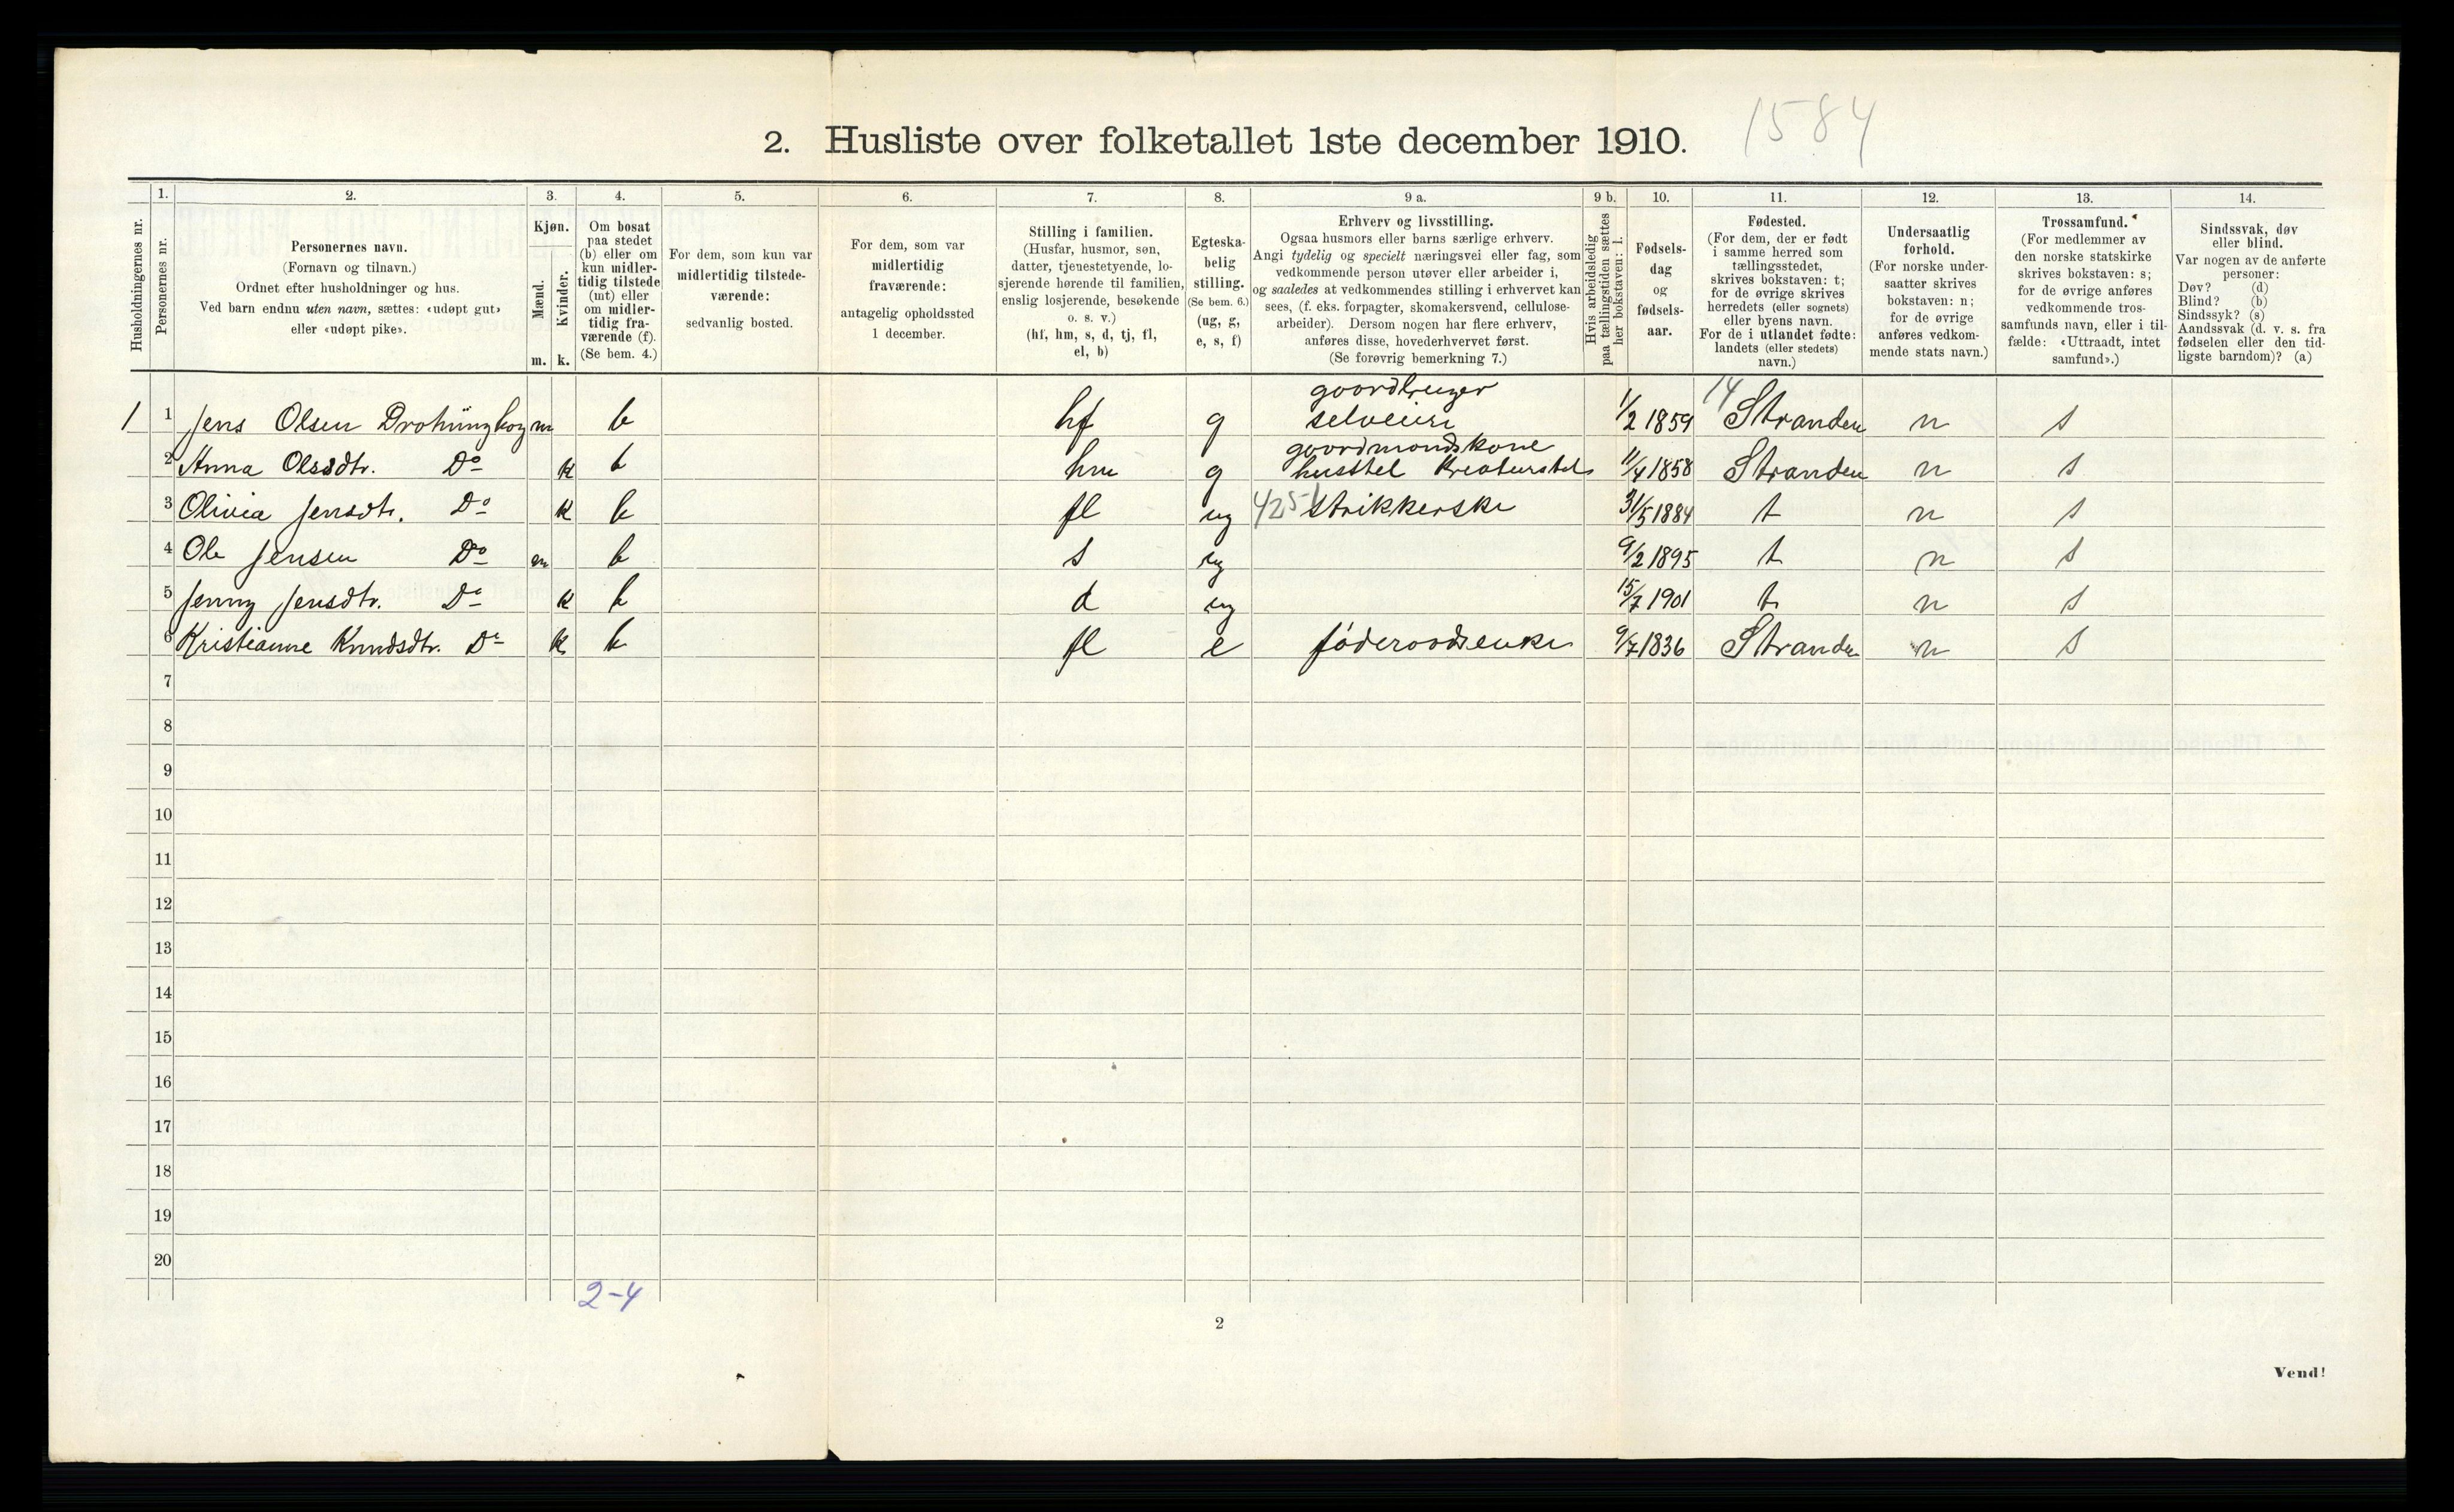 2. Husliste over folketallet 1ste december 1910.
1584
Husholdningernes nr.
1.
Personernes nr.
2.
Personernes navn.
(Fornavn og tilnavn.)
Ordnet efter husholdninger og hus.
Ved barn endnu uten navn, sættes: «udøpt gut»
eller «udøpt pike».
3.
Kjøn.
Mænd.
Kvinder.
m. k.
4.
Om bosat
paa stedet
(b) eller om
kun midler-
tidig tilstede
(mt) eller
om midler-
tidig fra-
værende (f).
(Se bem. 4.)
5.
For dem, som kun var
midlertidig tilstede-
værende:
sedvanlig bosted.
6.
For dem, som var
midlertidig
fraværende:
antagelig opholdssted
1 december.
7.
Stilling i familien.
(Husfar, husmor, søn,
datter, tjenestetyende, lo-
sjerende hørende til familien,
enslig losjerende, besøkende
o. s. v.)
(hf, hm, s, d, tj, fl,
el, b)
8.
Egteska-
belig
stilling.
(Se bem. 6.)
(ug, g,
e, s, f)
9 a.
Erhverv og livsstilling.
Ogsaa husmors eller barns særlige erhverv.
Angi tydelig og specielt næringsvei eller fag, som
vedkommende person utøver eller arbeider i,
og saaledes at vedkommendes stilling i erhvervet kan
sees, (f. eks. forpagter, skomakersvend, cellulose-
arbeider). Dersom nogen har flere erhverv,
anføres disse, hovederhvervet først.
(Se forøvrig bemerkning 7.)
9 b.
Hvis arbeidsledig
paa tællingstiden sættes
her bokstaven: l.
10.
Fødsels-
dag
og
fødsels-
aar.
11.
Fødested.
(For dem, der er født
i samme herred som
tællingsstedet,
skrives bokstaven: t;
for de øvrige skrives
herredets (eller sognets)
eller byens navn.
For de i utlandet fødte:
landets (eller stedets)
navn.)
12.
Undersaatlig
forhold.
(For norske under-
saatter skrives
bokstaven: n;
for de øvrige
anføres vedkom-
mende stats navn.)
13.
Trossamfund.
(For medlemmer av
den norske statskirke
skrives bokstaven: s;
for de øvrige anføres
vedkommende tros-
samfunds navn, eller i til-
fælde: «Uttraadt, intet
samfund».)
14.
Sindssvak, døv
eller blind.
Var nogen av de anførte
personer:
Døv? (d)
Blind? (b)
Sindssyk? (s)
Aandssvak (d. v. s. fra
fødselen eller den tid-
ligste barndom)? (a)
goordbruger 14
1 1 Jens Olsen m b hf g selveier 1/2 1859 Stranden n s
goordmondskone
2 Anna Olsdtr. Do k b hm g husstel Kreaturstel 11/4 1858 Stranden n s
3 Olivia Jensdtr. Do k b fl ug 425 Strikkerske 31/5 1884 t n s
4 Ole Jensen Do m b s ug 9/2 1895 t n s
5 Jenny Jensdtr. Do k b d ug 15/7 1901 t n s
6 Kristianne Knudsdtr. Do k b fl e föderoodsenke 9/7 1836 Stranden n s
7
8
9
10
11
12
13
14
15
16
17
18
19
20
2-4
2
Vend!